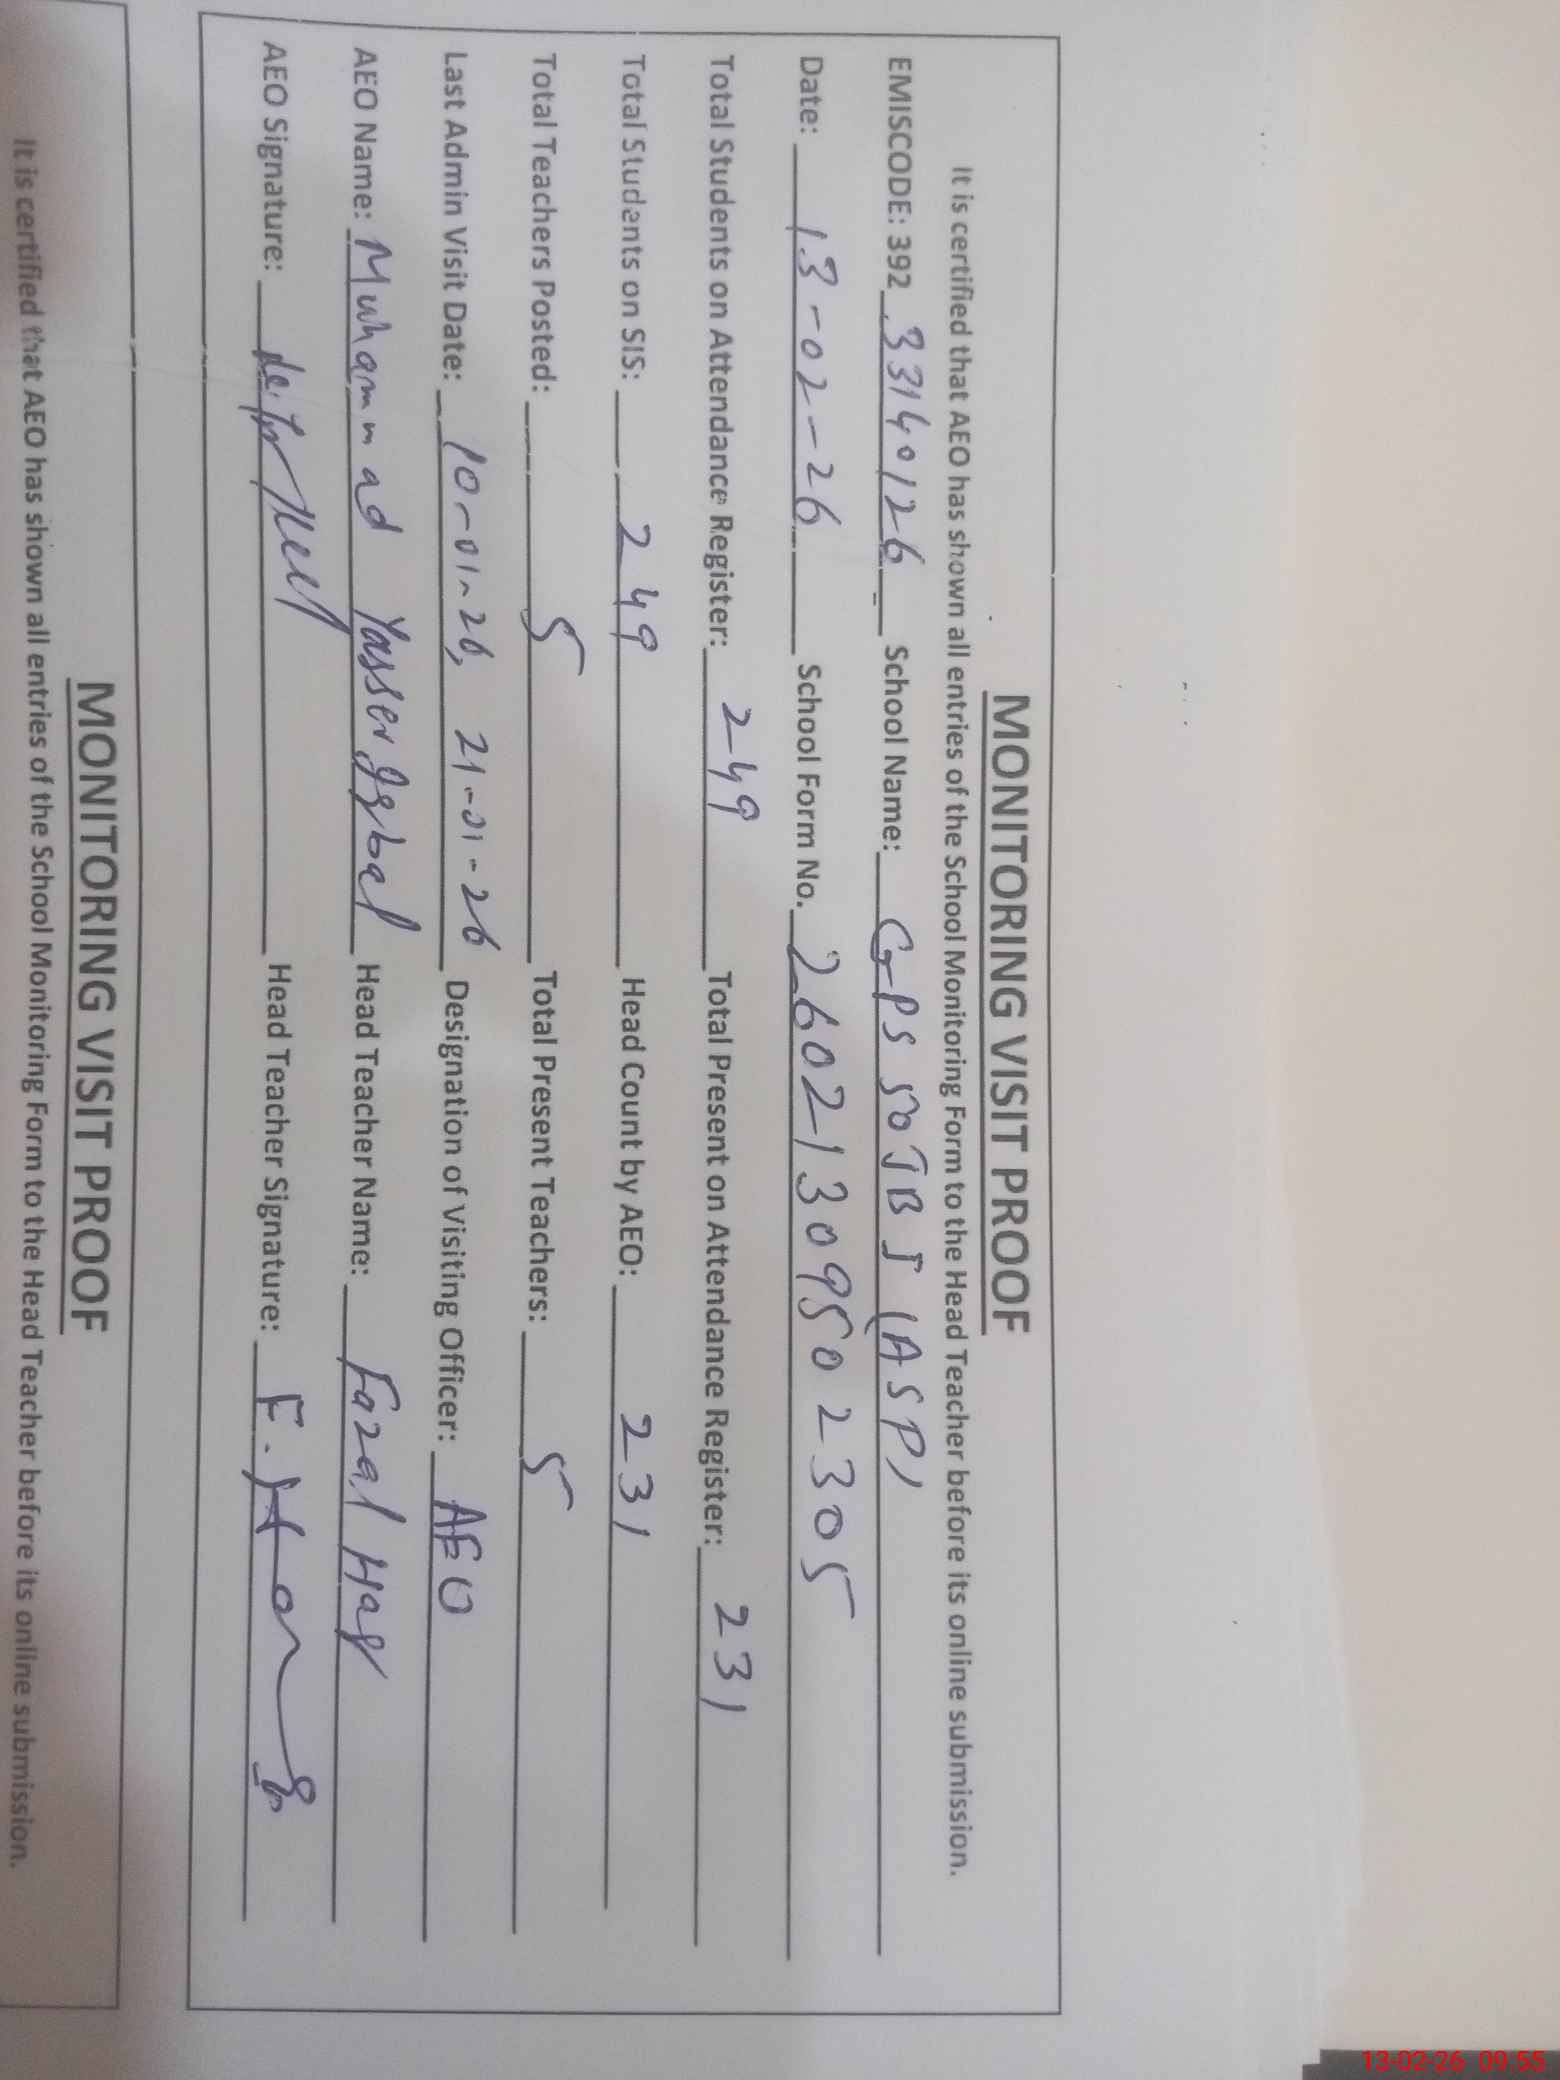 MONITORING VISIT PROOF
It is certified that AEO has shown all entries of the School Monitoring Form to the Head Teacher before its online submission.
EMISCODE: 392 33140126 School Name: GPS 50 JB I (ASP)
Date: 13-02-26 School Form No. 26021309502305
Total Students on Attendance Register: 249 Total Present on Attendance Register: 231
Total Students on SIS: 249 Head Count by AEO: 231
Total Teachers Posted: 5 Total Present Teachers: 5
Last Admin Visit Date: 10-01-26, 21-01-26 Designation of Visiting Officer: AEO
AEO Name: Muhammad Yasser Iqbal Head Teacher Name: Fazal Haq
AEO Signature: Head Teacher Signature: F.
MONITORING VISIT PROOF
It is certified that AEO has shown all entries of the School Monitoring Form to the Head Teacher before its online submission.
13-02-26 09:55